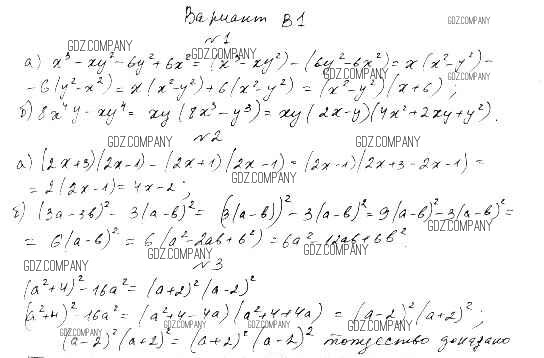 Вариант В1
GDZ.COMPANY
№1
GDZ.COMPANY
GDZ.COMPANY
а) x³ - xy² - 6y² + 6x² = (x³ - xy²) - (6y² - 6x²) = x(x² - y²) -
GDZ.COMPANY
GDZ.COMPANY
- 6(y² - x²) = x(x² - y²) + 6(x² - y²) = (x² - y²)(x + 6);
б) 8x⁴y - xy⁴ = xy(8x³ - y³) = xy(2x - y)(4x² + 2xy + y²).
GDZ.COMPANY
№2
GDZ.COMPANY
а) (2x+3)(2x-1) - (2x+1)(2x-1) = (2x-1)(2x+3-2x-1) =
= 2(2x-1) = 4x-2;
GDZ.COMPANY
б) (3a-3b)² - 3(a-b)² = (3(a-b))² - 3(a-b)² = 9(a-b)² - 3(a-b)² =
GDZ.COMPANY
= 6(a-b)² = 6(a² - 2ab + b²) = 6a² - 12ab + 6b².
GDZ.COMPANY
GDZ.COMPANY
№3
(a²+4)² - 16a² = (a+2)²(a-2)²
(a²+4)² - 16a² = (a²+4-4a)(a²+4+4a) = (a-2)²(a+2)²;
GDZ.COMPANY
GDZ.COMPANY
GDZ.COMPANY
GDZ.COMPANY
(a-2)²(a+2)² = (a+2)²(a-2)² тождество доказано